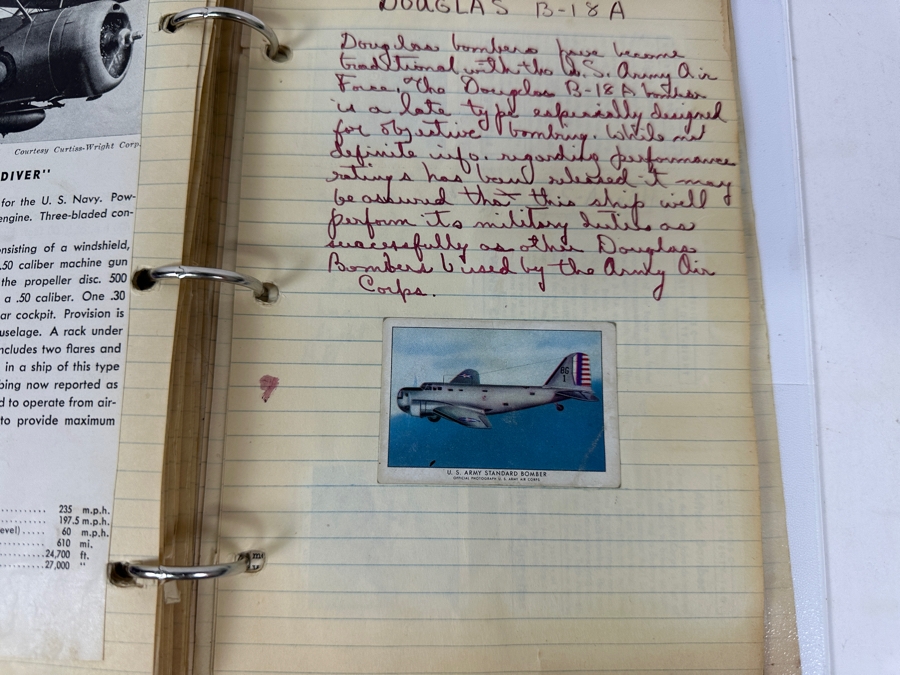 Courtesy Curtiss-Wright Corp.
DIVER"
for the U. S. Navy. Pow-
engine. Three-bladed con-
onsisting of a windshield,
.50 caliber machine gun
the propeller disc. 500
a .50 caliber. One .30
ar cockpit. Provision is
uselage. A rack under
ncludes two flares and
in a ship of this type
bing now reported as
d to operate from air-
to provide maximum
235 m.p.h.
197.5 m.p.h.
evel) 60 m.p.h.
610 mi.
24,700 ft.
27,000 "
DOUGLAS B-18A
Douglas bombers have become
traditional with the U.S. Army Air
Force. The Douglas B-18A bomber
is a late type especially designed
for objective bombing. While not
definite info. regarding performance
ratings has been released it may
be assured that this ship will
perform its military duties as
successfully as other Douglas
Bombers used by the Army Air
Corps.
BG
1
U. S. ARMY STANDARD BOMBER
OFFICIAL PHOTOGRAPH U. S. ARMY AIR CORPS